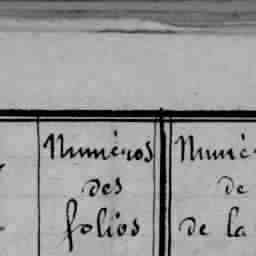 Numéros
des
folios
Numér
de
de la